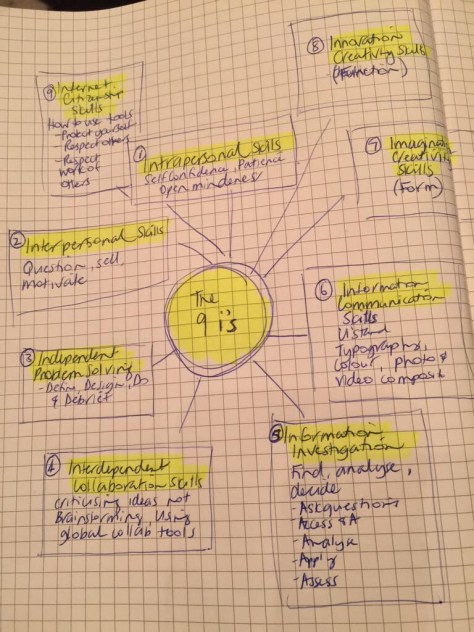 The
9 is
① Intrapersonal Skills
Self Confidence, Patience
Open mindeness
② Interpersonal Skills
Question, sell,
motivate
③ Independent
Problem Solving
- Define, Design, Do
& Debrief
④ Interdependent
Collaboration Skills
critiusing ideas not
Brainstorming, Using
global collab tools
⑤ Information
Investigation
Find, analyse,
decide
- Ask questions
- Analyse
- Apply
- Assess
⑥ Information
Communication
Skills
Typography,
Colour, photo &
video composit
⑦ Imagination
Creativity
Skills
(Form)
⑧ Innovation
Creativity Skills
(Function)
⑨ Internet
Citizenship
Skills
How to use tools
- Protect yourself
- Respect others
- Respect
work of
others